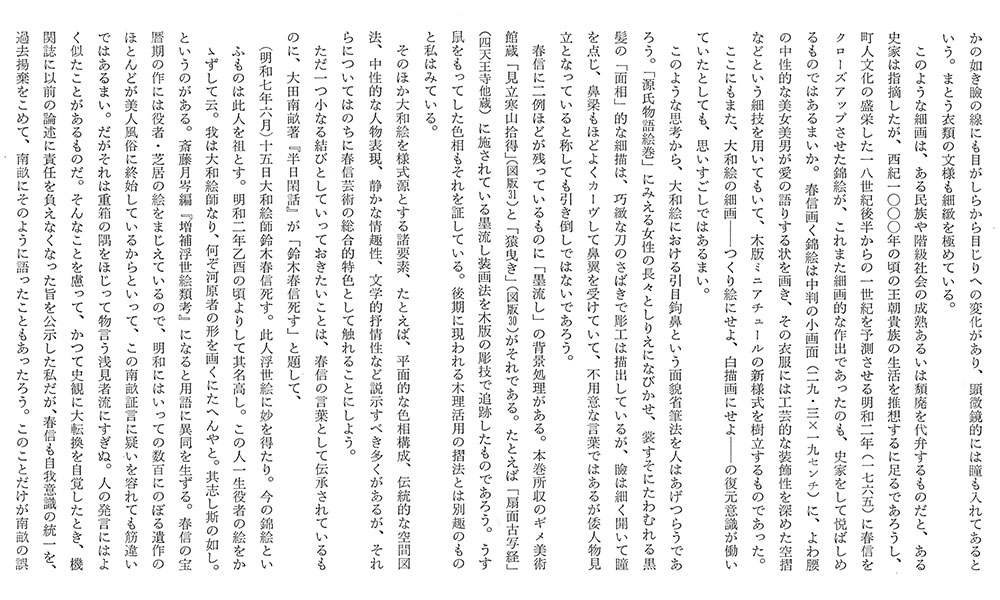 かの如き瞼の線にも目がしらから目じりへの変化があり、顕微鏡的には瞳も入れてあると
いう。まとう衣類の文様も細緻を極めている。
このような細画は、ある民族や階級社会の成熟あるいは頽廃を代弁するものだと、ある
史家は指摘したが、西紀一〇〇〇年の頃の王朝貴族の生活を推想するに足るであろうし、
町人文化の盛栄した一八世紀後半からの一世紀を予測させる明和二年(一七六五)に春信を
クローズアップさせた錦絵が、これまた細画的な作出であったのも、史家をして悦ばしめ
るものではあるまいか。春信画く錦絵は中判の小画面(二九・三×一九センチ)に、よわ腰
の中性的な美女美男が愛の語りする状を画き、その衣服には工芸的な装飾性を深めた空摺
などという細技を用いてもいて、木版ミニアチュールの新様式を樹立するものであった。
ここにもまた、大和絵の細画——つくり絵にせよ、白描画にせよ——の復元意識が働い
ていたとしても、思いすごしではあるまい。
このような思考から、大和絵における引目鉤鼻という面貌省筆法を人はあげつらうであ
ろう。「源氏物語絵巻」にみえる女性の長々としりえになびかせ、裳すそにたわむれる黒
髪の「面相」的な細描は、巧緻な刀のさばきで彫工は描出しているが、瞼は細く開いて瞳
を点じ、鼻梁もほどよくカーヴして鼻翼を受けていて、不用意な言葉ではあるが倭人物見
立となっていると称しても引き倒しではないであろう。
春信に二例ほどが残っているものに「墨流し」の背景処理がある。本巻所収のギメ美術
館蔵「見立寒山拾得」(図版31)と「猿曳き」(図版30)がそれである。たとえば「扇面古写経」
(四天王寺他蔵)に施されている墨流し装画法を木版の彫技で追跡したものであろう。うす
鼠をもってした色相もそれを証している。後期に現われる木理活用の摺法とは別趣のもの
と私はみている。
そのほか大和絵を様式源とする諸要素、たとえば、平面的な色相構成、伝統的な空間図
法、中性的な人物表現、静かな情趣性、文学的抒情性など説示すべき多くがあるが、それ
らについてはのちに春信芸術の総合的特色として触れることにしよう。
ただ一つ小なる結びとしていっておきたいことは、春信の言葉として伝承されているも
のに、大田南畝著『半日閑話』が「鈴木春信死す」と題して、
(明和七年六月)十五日大和絵師鈴木春信死す。此人浮世絵に妙を得たり。今の錦絵とい
ふものは此人を祖とす。明和二年乙酉の頃よりして其名高し。この人一生役者の絵をか
ゝずして云。我は大和絵師なり、何ぞ河原者の形を画くにたへんやと。其志し斯の如し。
というのがある。斎藤月岑編『増補浮世絵類考』になると用語に異同を生ずる。春信の宝
暦期の作には役者・芝居の絵をまじえているので、明和にはいっての数百にのぼる遺作の
ほとんどが美人風俗に終始しているからといって、この南畝証言に疑いを容れても筋違い
ではあるまい。だがそれは重箱の隅をほじって物言う浅見者流にすぎぬ。人の発言にはよ
く似たことがあるものだ。そんなことを慮って、かつて史観に大転換を自覚したとき、機
関誌に以前の論述に責任を負えなくなった旨を公示した私だが、春信も自我意識の統一を、
過去揚棄をこめて、南畝にそのように語ったこともあったろう。このことだけが南畝の誤